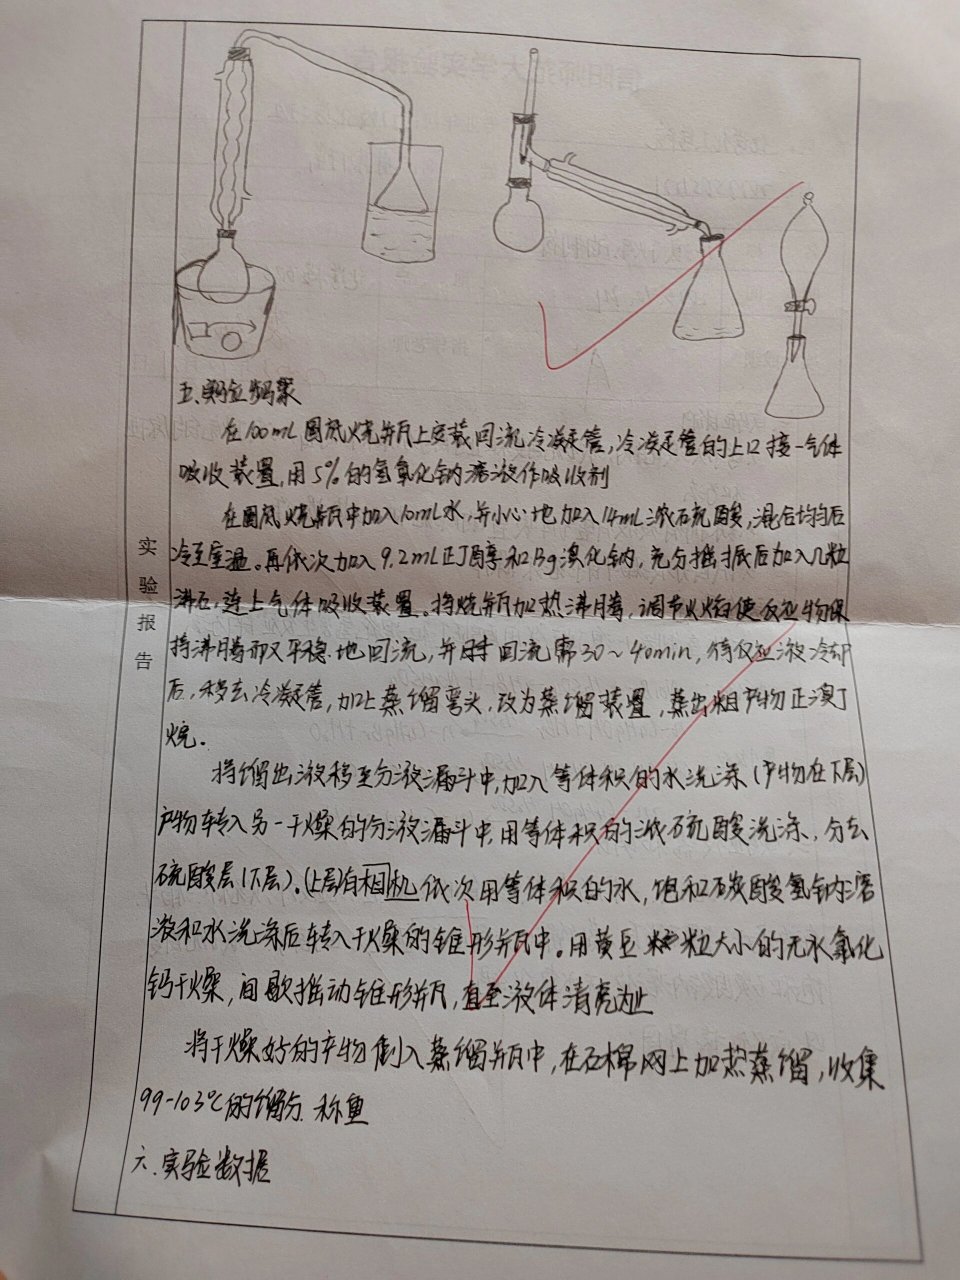 五、实验步骤
在100mL圆底烧瓶上安装回流冷凝管,冷凝管的上口接一气体
吸收装置,用5%的氢氧化钠溶液作吸收剂
在圆底烧瓶中加入10mL水,并小心地加入14mL浓硫酸,混合均匀后
冷至室温。再依次加入9.2mL正丁醇和13g溴化钠,充分摇振后加入几粒
沸石,连上气体吸收装置。将烧瓶加热沸腾,调节火焰使反应物保
持沸腾而又平稳地回流,并时回流需30~40min,待反应液冷却
后,移去冷凝管,加上蒸馏弯头,改为蒸馏装置,蒸出粗产物正溴丁
烷.
将馏出液移至分液漏斗中,加入等体积的水洗涤(产物在下层)
产物转入另一干燥的分液漏斗中,用等体积的浓硫酸洗涤,分去
硫酸层(下层).(上层)有相机依次用等体积的水,饱和碳酸氢钠溶
液和水洗涤后转入干燥的锥形瓶中。用黄豆粒大小的无水氯化
钙干燥,间歇摇动锥形瓶,直至液体清亮为止
将干燥好的产物倒入蒸馏瓶中,在石棉网上加热蒸馏,收集
99-103℃的馏分.称重
六.实验数据
实验报告